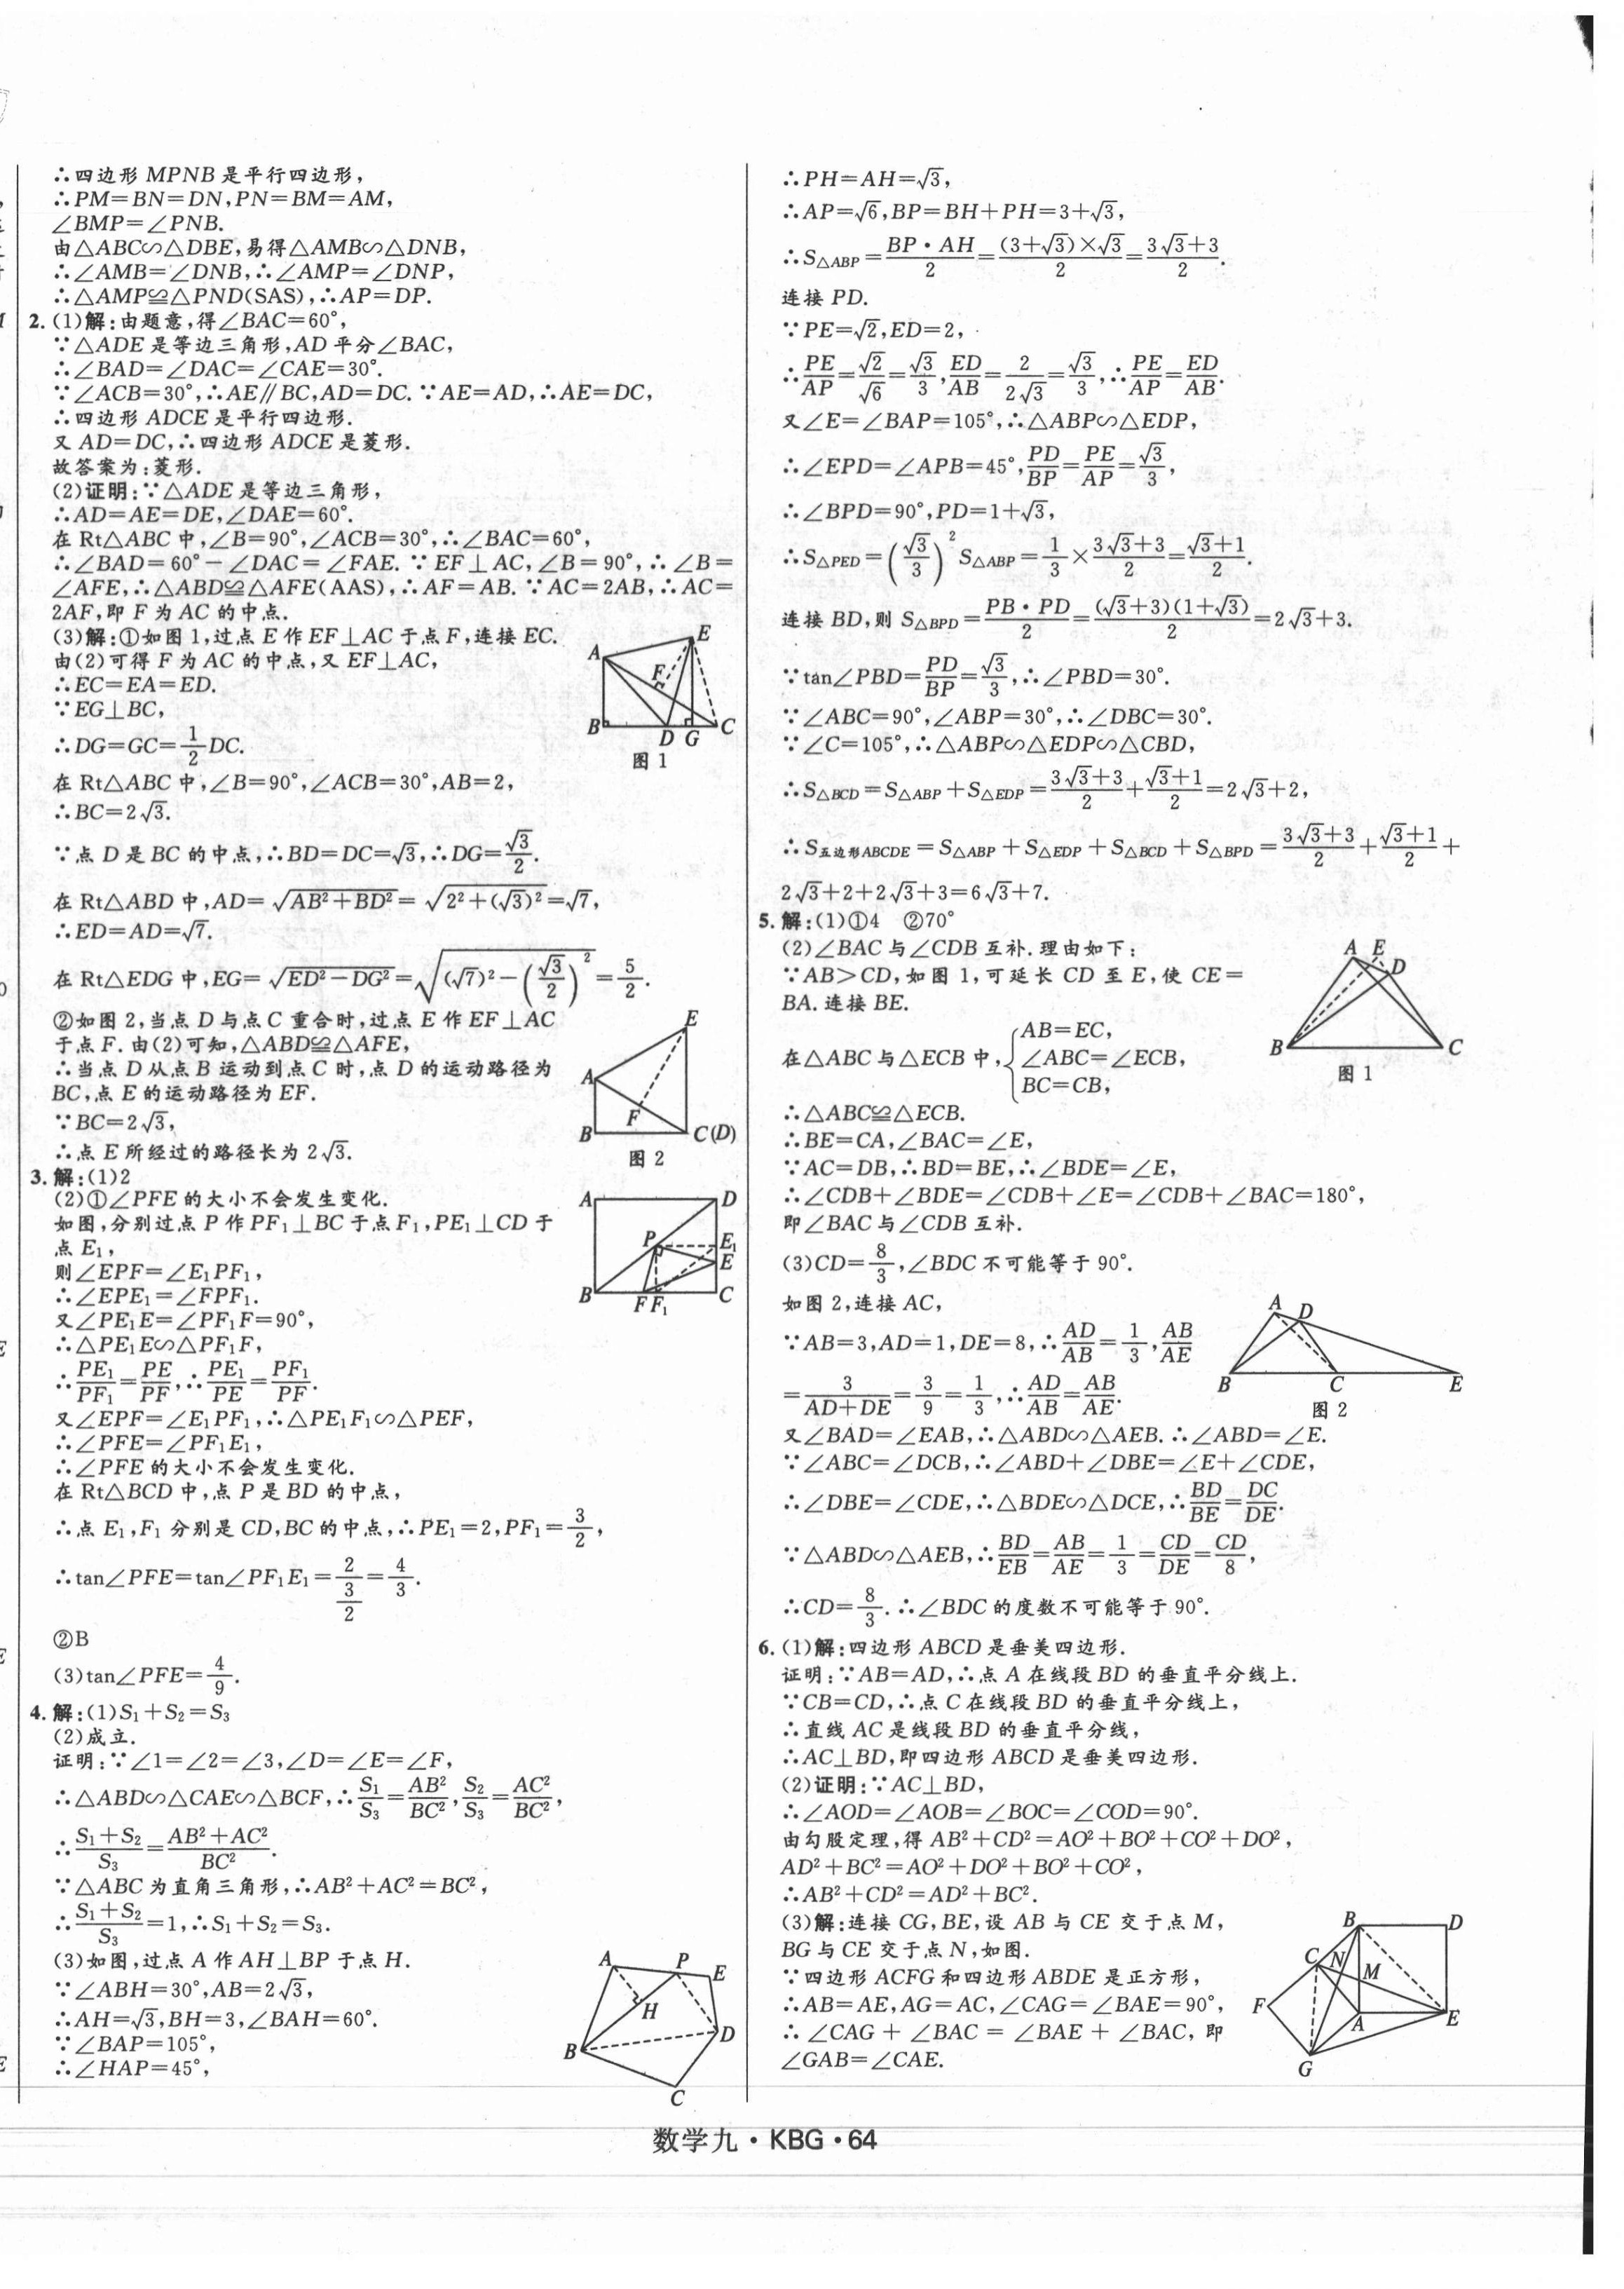 ∴四边形 MPNB 是平行四边形,
∴PM=BN=DN,PN=BM=AM,
∠BMP=∠PNB.
由△ABC∽△DBE,易得△AMB∽△DNB,
∴∠AMB=∠DNB,∴∠AMP=∠DNP,
∴△AMP≌△PND(SAS),∴AP=DP.
2. (1)解:由题意,得∠BAC=60°,
∵△ADE 是等边三角形,AD 平分∠BAC,
∴∠BAD=∠DAC=∠CAE=30°.
∵∠ACB=30°,∴AE∥BC,AD=DC.∵AE=AD,∴AE=DC,
∴四边形 ADCE 是平行四边形.
又 AD=DC,∴四边形 ADCE 是菱形.
故答案为:菱形.
(2)证明:∵△ADE 是等边三角形,
∴AD=AE=DE,∠DAE=60°.
在 Rt△ABC 中,∠B=90°,∠ACB=30°,∴∠BAC=60°,
∴∠BAD=60°-∠DAC=∠FAE.∵EF⊥AC,∠B=90°,∴∠B=
∠AFE,∴△ABD≌△AFE(AAS),∴AF=AB.∵AC=2AB,∴AC=
2AF,即 F 为 AC 的中点.
(3)解:①如图 1,过点 E 作 EF⊥AC 于点 F,连接 EC.
由(2)可得 F 为 AC 的中点,又 EF⊥AC,
∴EC=EA=ED.
∵EG⊥BC,
∴DG=GC=1/2 DC.
A E F B D G C
图 1
在 Rt△ABC 中,∠B=90°,∠ACB=30°,AB=2,
∴BC=2√3.
∵点 D 是 BC 的中点,∴BD=DC=√3,∴DG=√3/2.
在 Rt△ABD 中,AD=√(AB²+BD²)=√(2²+(√3)²)=√7,
∴ED=AD=√7.
在 Rt△EDG 中,EG=√(ED²-DG²)=√((√7)²-(√3/2)²)=5/2.
②如图 2,当点 D 与点 C 重合时,过点 E 作 EF⊥AC
于点 F.由(2)可知,△ABD≌△AFE,
∴当点 D 从点 B 运动到点 C 时,点 D 的运动路径为
BC,点 E 的运动路径为 EF.
∵BC=2√3,
∴点 E 所经过的路径长为 2√3.
E A F B C(D)
图 2
3. 解:(1)2
(2)①∠PFE 的大小不会发生变化.
如图,分别过点 P 作 PF₁⊥BC 于点 F₁,PE₁⊥CD 于
点 E₁,
则∠EPF=∠E₁PF₁,
∴∠EPE₁=∠FPF₁.
又∠PE₁E=∠PF₁F=90°,
∴△PE₁E∽△PF₁F,
A D P E₁ E B F F₁ C
∴PE₁/PF₁=PE/PF,∴PE₁/PE=PF₁/PF.
又∠EPF=∠E₁PF₁,∴△PE₁F₁∽△PEF,
∴∠PFE=∠PF₁E₁,
∴∠PFE 的大小不会发生变化.
在 Rt△BCD 中,点 P 是 BD 的中点,
∴点 E₁,F₁ 分别是 CD,BC 的中点,∴PE₁=2,PF₁=3/2,
∴tan∠PFE=tan∠PF₁E₁=2/(3/2)=4/3.
②B
(3)tan∠PFE=4/9.
4. 解:(1)S₁+S₂=S₃
(2)成立.
证明:∵∠1=∠2=∠3,∠D=∠E=∠F,
∴△ABD∽△CAE∽△BCF,∴S₁/S₃=AB²/BC²,S₂/S₃=AC²/BC²,
∴(S₁+S₂)/S₃=(AB²+AC²)/BC².
∵△ABC 为直角三角形,∴AB²+AC²=BC²,
∴(S₁+S₂)/S₃=1,∴S₁+S₂=S₃.
(3)如图,过点 A 作 AH⊥BP 于点 H.
∵∠ABH=30°,AB=2√3,
∴AH=√3,BH=3,∠BAH=60°.
∵∠BAP=105°,
∴∠HAP=45°,
A P E H D B C
∴PH=AH=√3,
∴AP=√6,BP=BH+PH=3+√3,
∴S△ABP=BP·AH/2=(3+√3)×√3/2=(3√3+3)/2.
连接 PD.
∵PE=√2,ED=2,
∴PE/AP=√2/√6=√3/3,ED/AB=2/(2√3)=√3/3,∴PE/AP=ED/AB.
又∠E=∠BAP=105°,∴△ABP∽△EDP,
∴∠EPD=∠APB=45°,PD/BP=PE/AP=√3/3,
∴∠BPD=90°,PD=1+√3,
∴S△PED=(√3/3)² S△ABP=1/3×(3√3+3)/2=(√3+1)/2.
连接 BD,则 S△BPD=PB·PD/2=(√3+3)(1+√3)/2=2√3+3.
∵tan∠PBD=PD/BP=√3/3,∴∠PBD=30°.
∵∠ABC=90°,∠ABP=30°,∴∠DBC=30°.
∵∠C=105°,∴△ABP∽△EDP∽△CBD,
∴S△BCD=S△ABP+S△EDP=(3√3+3)/2+(√3+1)/2=2√3+2,
∴S五边形ABCDE=S△ABP+S△EDP+S△BCD+S△BPD=(3√3+3)/2+(√3+1)/2+
2√3+2+2√3+3=6√3+7.
5. 解:(1)①4 ②70°
(2)∠BAC 与∠CDB 互补.理由如下:
∵AB>CD,如图 1,可延长 CD 至 E,使 CE=
BA.连接 BE.
在△ABC 与△ECB 中,{AB=EC,
∠ABC=∠ECB,
BC=CB,
A E D B C
图 1
∴△ABC≌△ECB.
∴BE=CA,∠BAC=∠E,
∵AC=DB,∴BD=BE,∴∠BDE=∠E,
∴∠CDB+∠BDE=∠CDB+∠E=∠CDB+∠BAC=180°,
即∠BAC 与∠CDB 互补.
(3)CD=8/3,∠BDC 不可能等于 90°.
如图 2,连接 AC,
∵AB=3,AD=1,DE=8,∴AD/AB=1/3,AB/AE
=3/(AD+DE)=3/9=1/3,∴AD/AB=AB/AE.
A D B C E
图 2
又∠BAD=∠EAB,∴△ABD∽△AEB.∴∠ABD=∠E.
∵∠ABC=∠DCB,∴∠ABD+∠DBE=∠E+∠CDE,
∴∠DBE=∠CDE,∴△BDE∽△DCE,∴BD/BE=DC/DE.
∵△ABD∽△AEB,∴BD/EB=AB/AE=1/3=CD/DE=CD/8,
∴CD=8/3.∴∠BDC 的度数不可能等于 90°.
6. (1)解:四边形 ABCD 是垂美四边形.
证明:∵AB=AD,∴点 A 在线段 BD 的垂直平分线上.
∵CB=CD,∴点 C 在线段 BD 的垂直平分线上,
∴直线 AC 是线段 BD 的垂直平分线,
∴AC⊥BD,即四边形 ABCD 是垂美四边形.
(2)证明:∵AC⊥BD,
∴∠AOD=∠AOB=∠BOC=∠COD=90°.
由勾股定理,得 AB²+CD²=AO²+BO²+CO²+DO²,
AD²+BC²=AO²+DO²+BO²+CO²,
∴AB²+CD²=AD²+BC².
(3)解:连接 CG,BE,设 AB 与 CE 交于点 M,
BG 与 CE 交于点 N,如图.
∵四边形 ACFG 和四边形 ABDE 是正方形,
∴AB=AE,AG=AC,∠CAG=∠BAE=90°,
∴∠CAG+∠BAC=∠BAE+∠BAC,即
∠GAB=∠CAE.
B D C N M F A E G
数学九·KBG·64